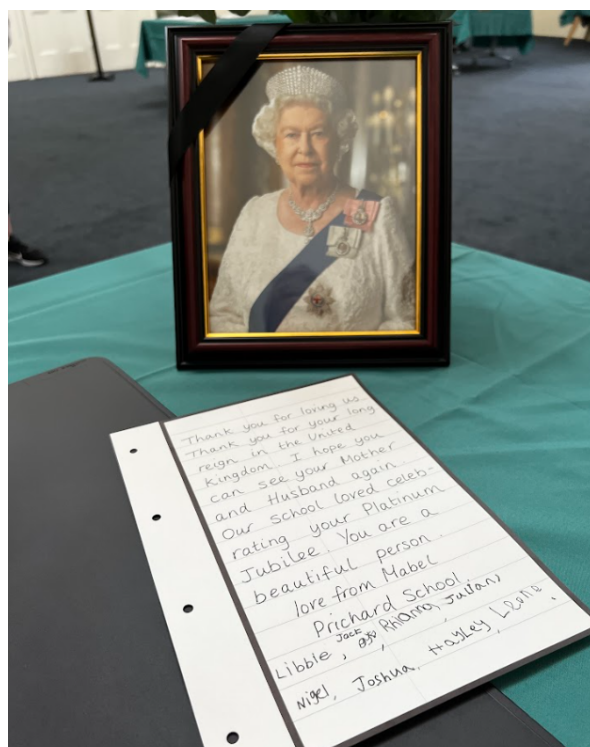 Thank you for loving us
Thank you for your long
reign in the United
Kingdom. I hope you
can see your Mother
and Husband again.
Our school loved celeb-
rating your Platinum
Jubilee. You are a
beautiful person.
love from Mabel
Prichard School
Jack
Libbie, Rhianna, Julian,
Nigel, Joshua, Hayley, Leone.